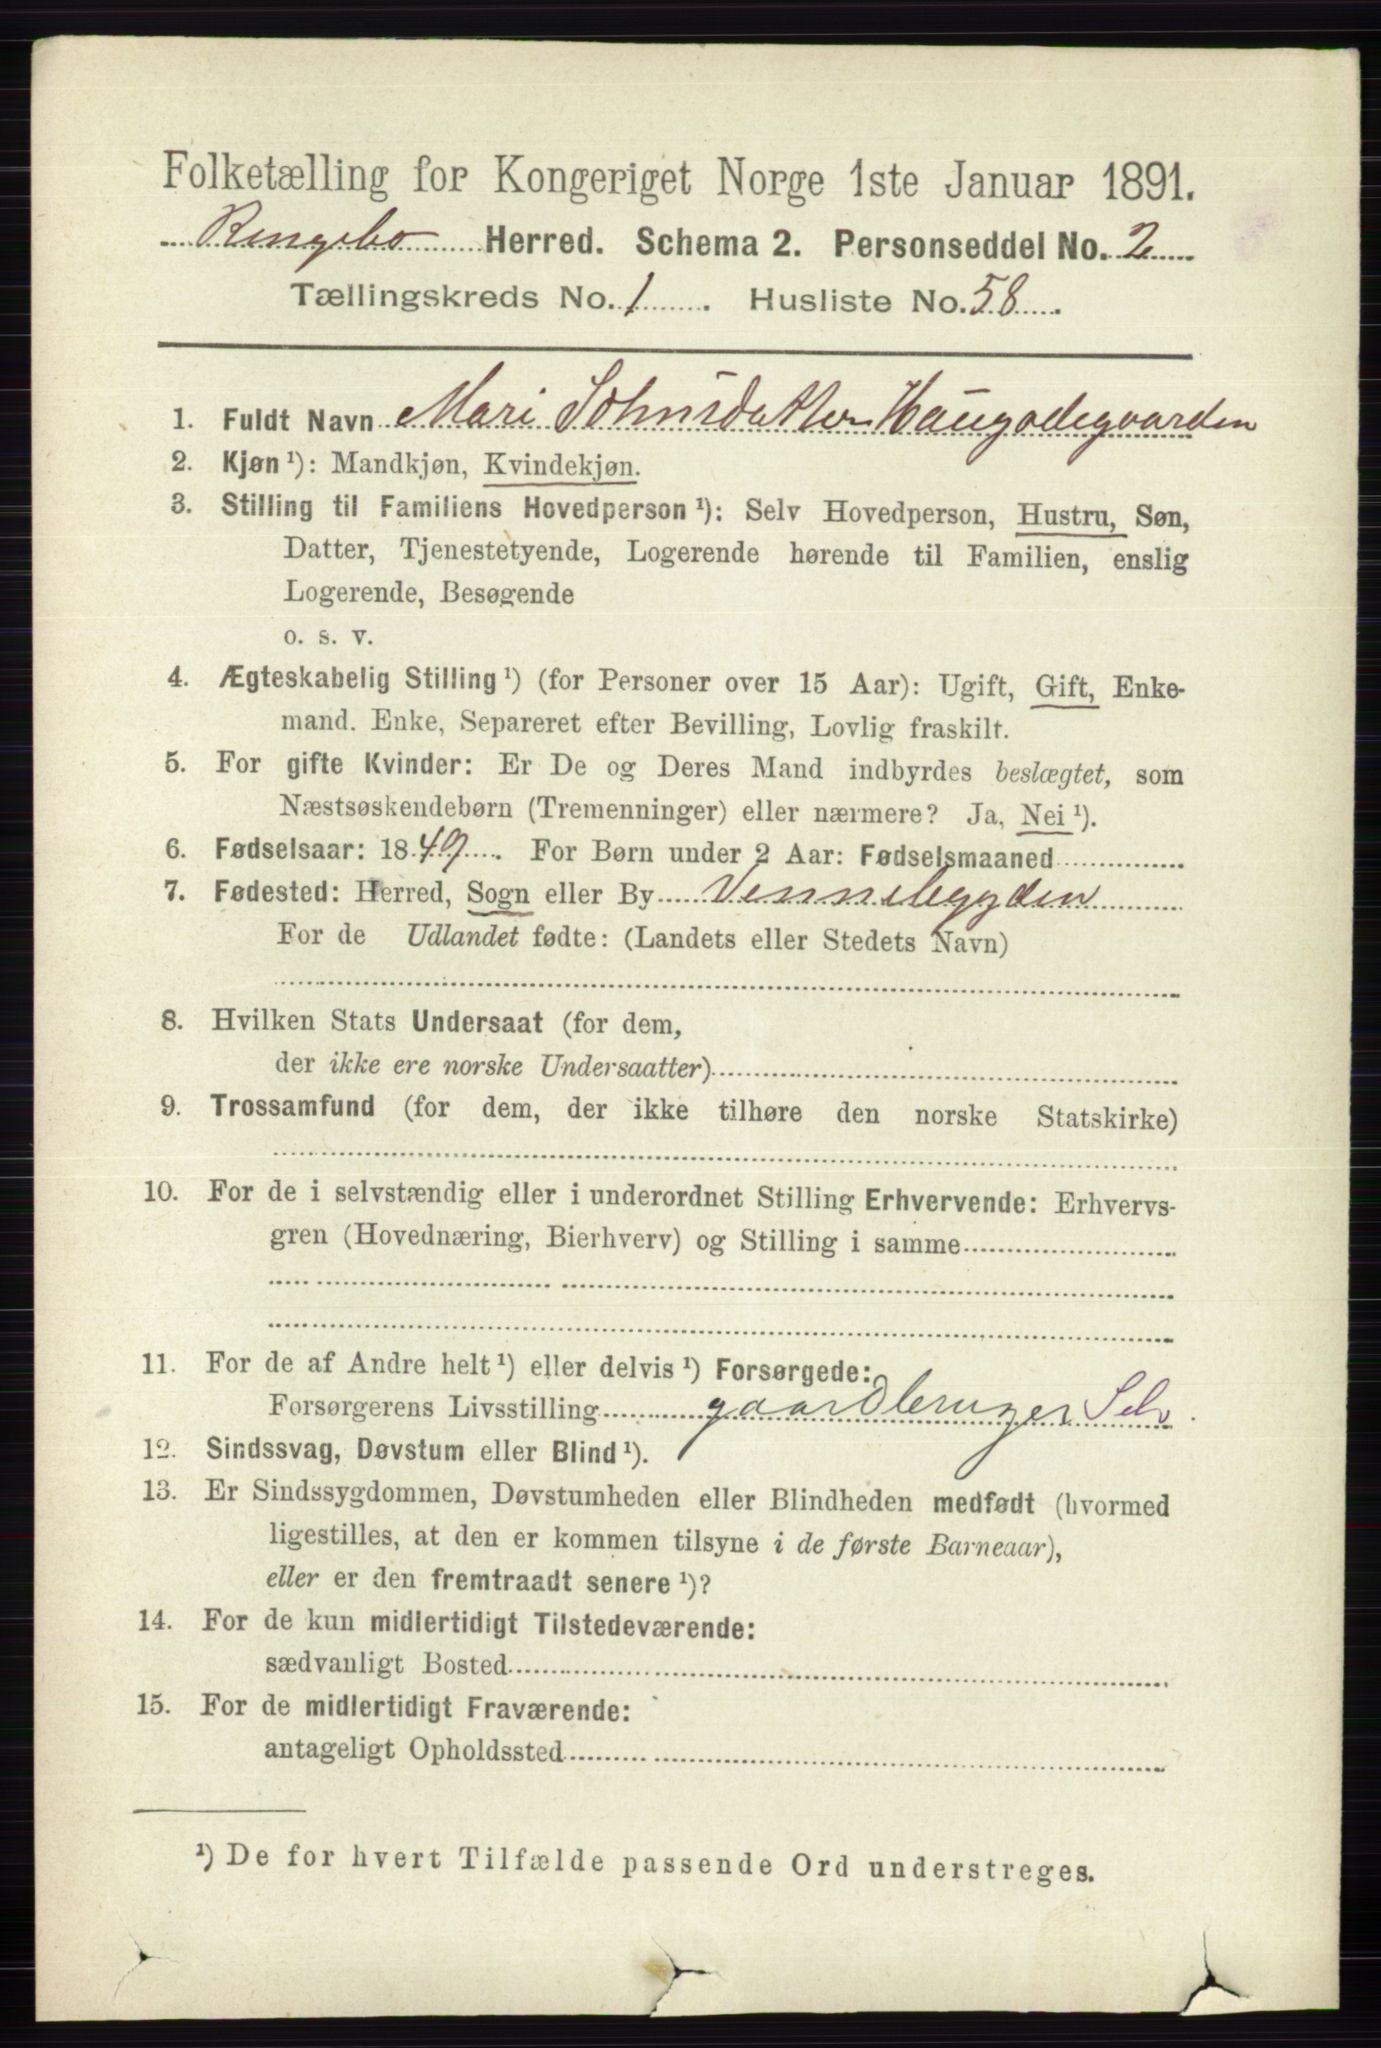 Folketælling for Kongeriget Norge 1ste Januar 1891.
Ringebo Herred. Schema 2. Personseddel No. 2
Tællingskreds No. 1. Husliste No. 58.
1. Fuldt Navn Mari Johnsdatter Haugodegaarden
2. Kjøn ¹): Mandkjøn, Kvindekjøn.
3. Stilling til Familiens Hovedperson ¹): Selv Hovedperson, Hustru, Søn,
Datter, Tjenestetyende, Logerende hørende til Familien, enslig
Logerende, Besøgende
o. s. v.
4. Ægteskabelig Stilling ¹) (for Personer over 15 Aar): Ugift, Gift, Enke-
mand. Enke, Separeret efter Bevilling, Lovlig fraskilt.
5. For gifte Kvinder: Er De og Deres Mand indbyrdes beslægtet, som
Næstsøskendebørn (Tremenninger) eller nærmere? Ja, Nei ¹).
6. Fødselsaar: 1849. For Børn under 2 Aar: Fødselsmaaned
7. Fødested: Herred, Sogn eller By Vennebygden
For de Udlandet fødte: (Landets eller Stedets Navn)
8. Hvilken Stats Undersaat (for dem,
der ikke ere norske Undersaatter)
9. Trossamfund (for dem, der ikke tilhøre den norske Statskirke)
10. For de i selvstændig eller i underordnet Stilling Erhvervende: Erhvervs-
gren (Hovednæring, Bierhverv) og Stilling i samme
11. For de af Andre helt ¹) eller delvis ¹) Forsørgede:
Forsørgerens Livsstilling gaardbruger Selv.
12. Sindssvag, Døvstum eller Blind ¹).
13. Er Sindssygdommen, Døvstumheden eller Blindheden medfødt (hvormed
ligestilles, at den er kommen tilsyne i de første Barneaar),
eller er den fremtraadt senere ¹)?
14. For de kun midlertidigt Tilstedeværende:
sædvanligt Bosted
15. For de midlertidigt Fraværende:
antageligt Opholdssted
¹) De for hvert Tilfælde passende Ord understreges.